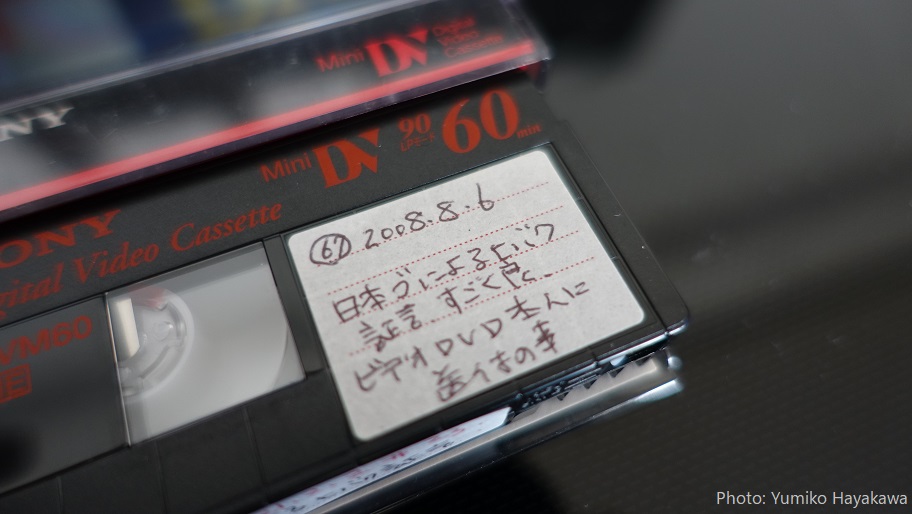 Mini DV Digital Video Cassette
SONY
Mini DV 90 LPモード 60 min
SONY
Digital Video Cassette
2008.8.6
日本ゴによるヒバク
証言 すごく良い
ビデオDVD本人に
の事
Photo: Yumiko Hayakawa